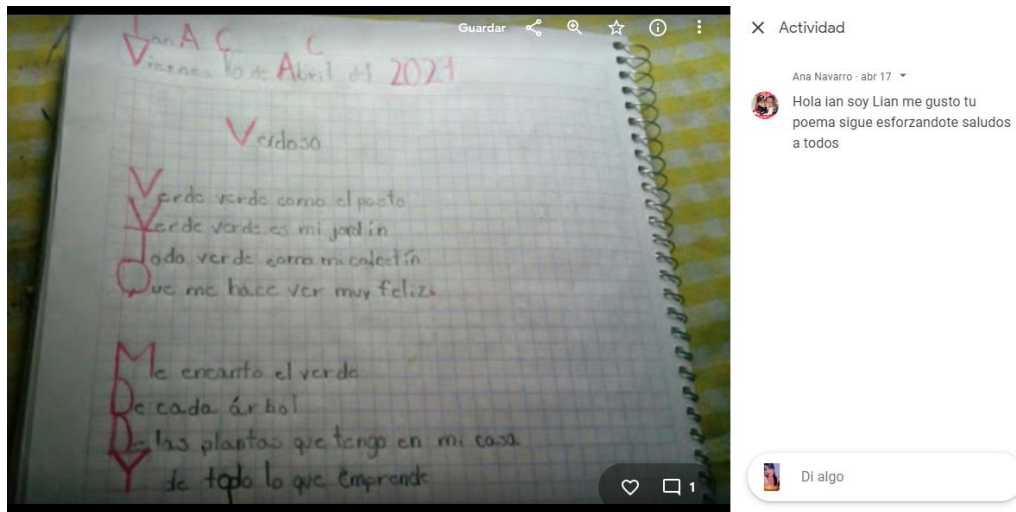 Guardar
Ian A C C
Viernes 16 de Abril del 2021
Verdoso
Verde verde como el pasto
Verde verde es mi jardín
Todo verde como mi calcetín
Que me hace ver muy feliz.
Me encanta el verde
De cada árbol
De las plantas que tengo en mi casa
Y de todo lo que emprende
1
Actividad
Ana Navarro · abr 17
Hola ian soy Lian me gusto tu
poema sigue esforzandote saludos
a todos
Di algo